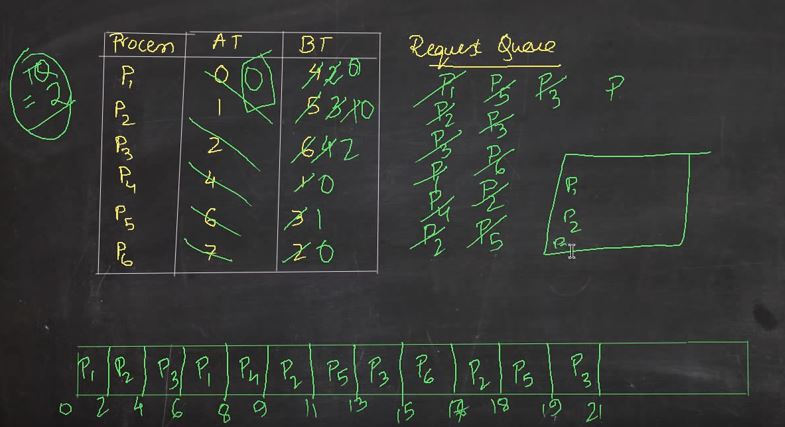 TQ = 2
Process AT BT
P1 0 0 4 2 0
P2 1 5 3 1 0
P3 2 6 4 2
P4 4 1 0
P5 6 3 1
P6 7 2 0
Request Queue
P1 P5 P3 P
P2 P3
P3 P6
P1 P2
P4 P5
P2
P1
P2
P1 P2 P3 P1 P4 P2 P5 P3 P6 P2 P5 P3
0 2 4 6 8 9 11 13 15 17 18 19 21